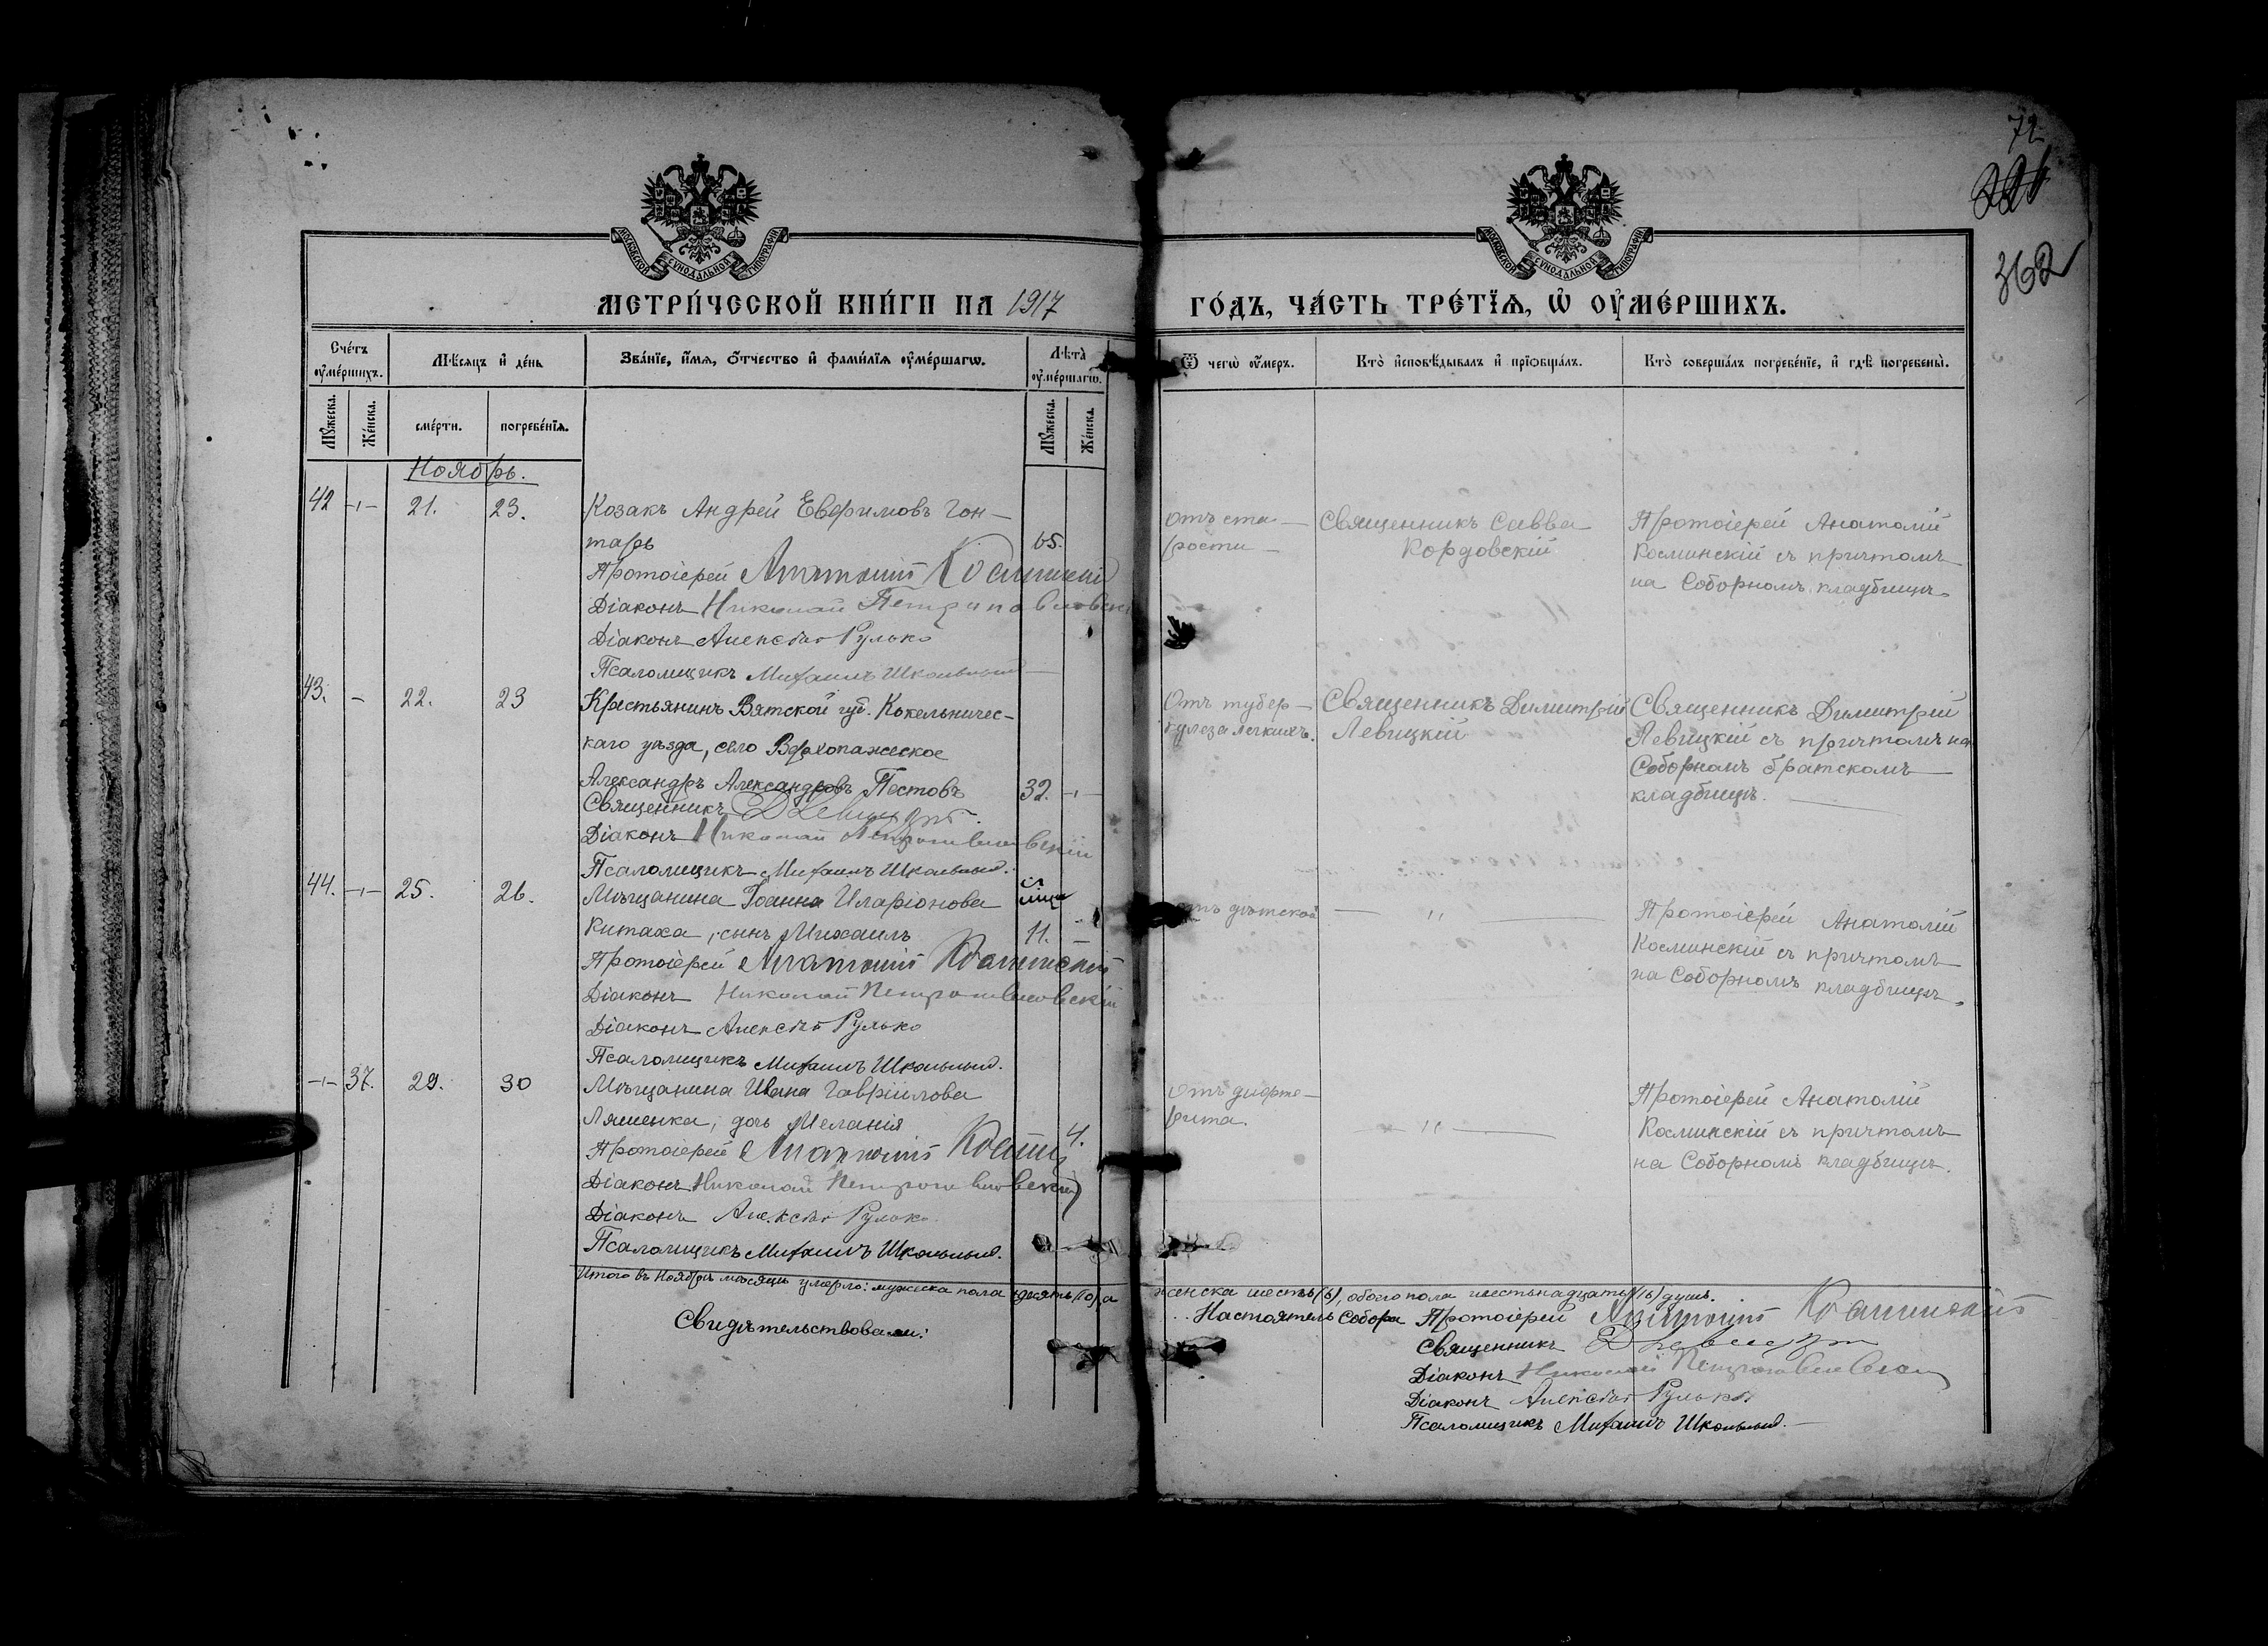 72
362
МОСКОВСКОЙ СѴНОДАЛЬНОЙ ТИПОГРАФІИ
МОСКОВСКОЙ СѴНОДАЛЬНОЙ ТИПОГРАФІИ
МЕТРИ́ЧЕСКОЙ КНИ́ГИ НА 1917
ГО́ДЪ, ЧА́СТЬ ТРЕ́ТЇѦ, Ѡ҆ ОУ҆МЕ́РШИХЪ.
Сче́тъ оу҆ме́ршихъ.
Мѣ́сѧцъ и҆ де́нь
Зва́нїе, и҆́мѧ, ѻ҆́тчество и҆ фами́лїѧ оу҆ме́ршагѡ.
Лѣ́та оу҆ме́ршагѡ.
Ѿ чегѡ̀ оу҆́меръ.
Кто̀ и҆сповѣ́дывалъ и҆ прїѡбща́лъ.
Кто̀ соверша́лъ погребе́нїе, и҆ гдѣ̀ погребены̀.
Мꙋ́жеска.
Же́нска.
сме́рти.
погребе́нїѧ.
Мꙋ́жеска.
Же́нска.
Ноябрь.
42 -ı- 21. 23. Козакъ Андрей Евфимовъ Гон-
тарь 65.
Протоіерей Анатолій Косминскій
Діаконъ Николай Петропавловскій
Діаконъ Алексѣй Рулько
Псаломщикъ Михаилъ Школьный
Отъ ста-
рости
Священникъ Савва
Кордовскій
Протоіерей Анатолій
Косминскій съ причтомъ
на Соборномъ кладбищѣ.
43. - 22. 23 Крестьянинъ Вятской губ. Кокельничес-
каго уѣзда, село Верхопажеское
Александръ Александровъ Пестовъ 32. -ı-
Священникъ Д Левицкій.
Діаконъ Николай Петропавловскій
Псаломщикъ Михаилъ Школьный.
Отъ тубер-
кулеза легкихъ.
Священникъ Димитрій
Левицкій
Священникъ Димитрій
Левицкій съ причтомъ на
Соборномъ братскомъ
кладбищѣ.
44. -ı- 25. 26. Мѣщанина Іоанна Иларіонова
Китаха, сынъ Михаилъ 11. -
Протоіерей Анатолій Косминскій
Діаконъ Николай Петропавловскій
Діаконъ Алексѣй Рулько
Псаломщикъ Михаилъ Школьный.
Отъ дѣтской
— ıı —
Протоіерей Анатолій
Косминскій съ причтомъ
на Соборномъ кладбищѣ.
-ı- 37. 29. 30 Мѣщанина Ивана Гавріилова
Ляшенка, дочь Меланія 4.
Протоіерей Анатолій Космин
Діаконъ Николай Петропавловскій
Діаконъ Алексѣй Рулько
Псаломщикъ Михаилъ Школьный.
Отъ дифте-
рита.
— ıı —
Протоіерей Анатолій
Косминскій съ причтомъ
на Соборномъ кладбищѣ.
Итого въ Ноябрѣ мѣсяцѣ умерло: мужеска пола десять (10), а
женска шесть (6), обоего пола шестьнадцать (16) душъ.
Свидѣтельствовали:
Настоятель Собора Протоіерей Анатолій Косминскій
Священникъ Д Левицкій
Діаконъ Николай Петропавловскій
Діаконъ Алексѣй Рулько
Псаломщикъ Михаилъ Школьный.